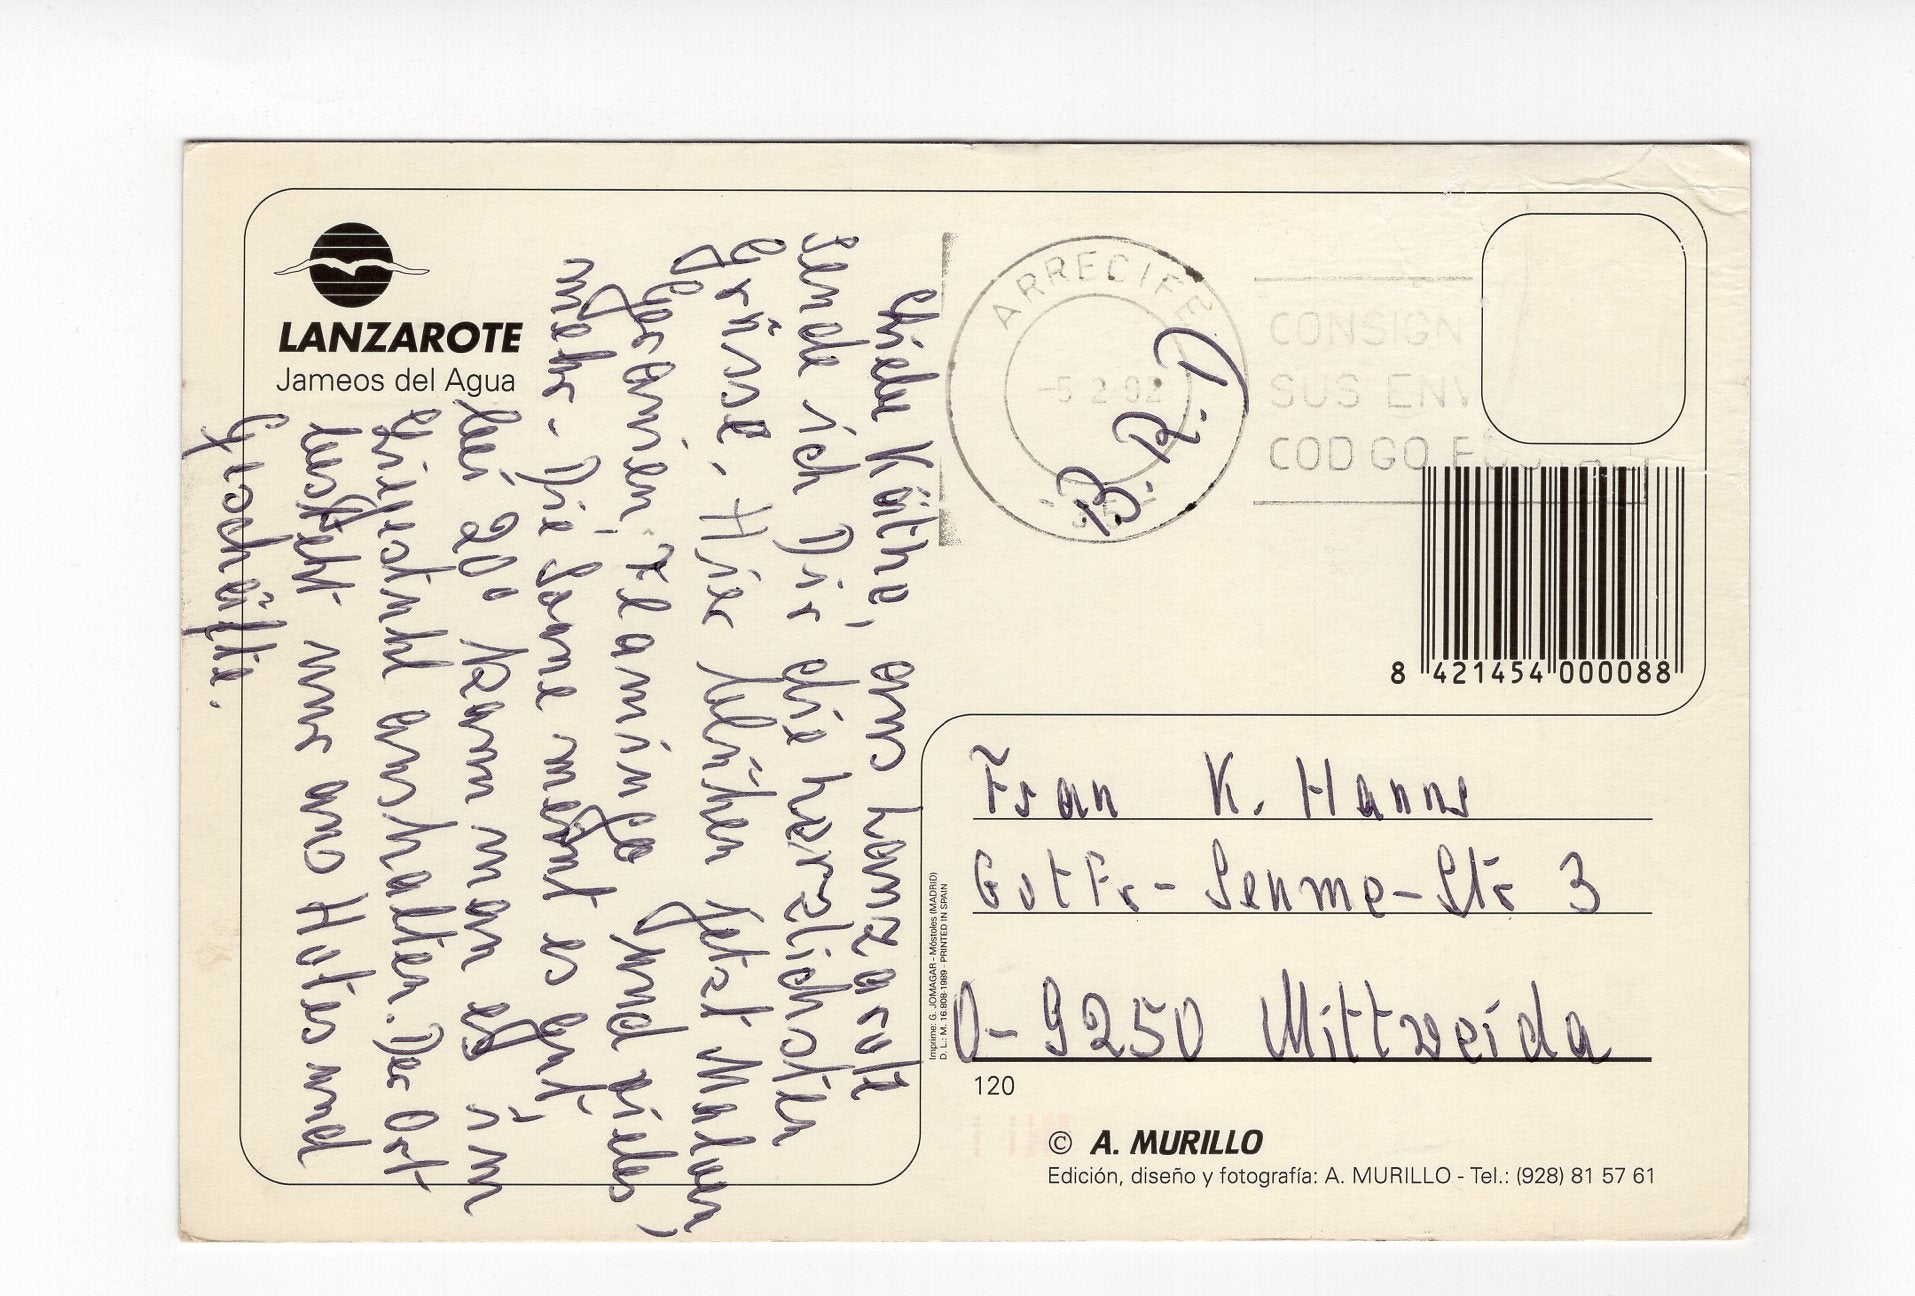 LANZAROTE
Jameos del Agua
Liebe Käthe, aus Lanzarote
sende ich Dir die herzlichsten
Grüsse. Hier blühen jetzt Malven,
Geranien, Flamingo und vieles
mehr. Die Sonne meint es gut,
bei 20° kann man es im
Liegestuhl aushalten. Der Ort
besteht nur aus Hotes und
Geschäfte.
ARRECIFE
-5.2.92
CONSIGN
SUS ENV
COD GO
B. R. D.
8 421454 000088
Frau K. Hanns
Gottfr-Senme-Str 3
O-9250 Mittweida
Imprime: G. JOMAGAR - Móstoles (MADRID)
D. L.: M. 16.808-1989 - PRINTED IN SPAIN
120
© A. MURILLO
Edición, diseño y fotografía: A. MURILLO - Tel.: (928) 81 57 61